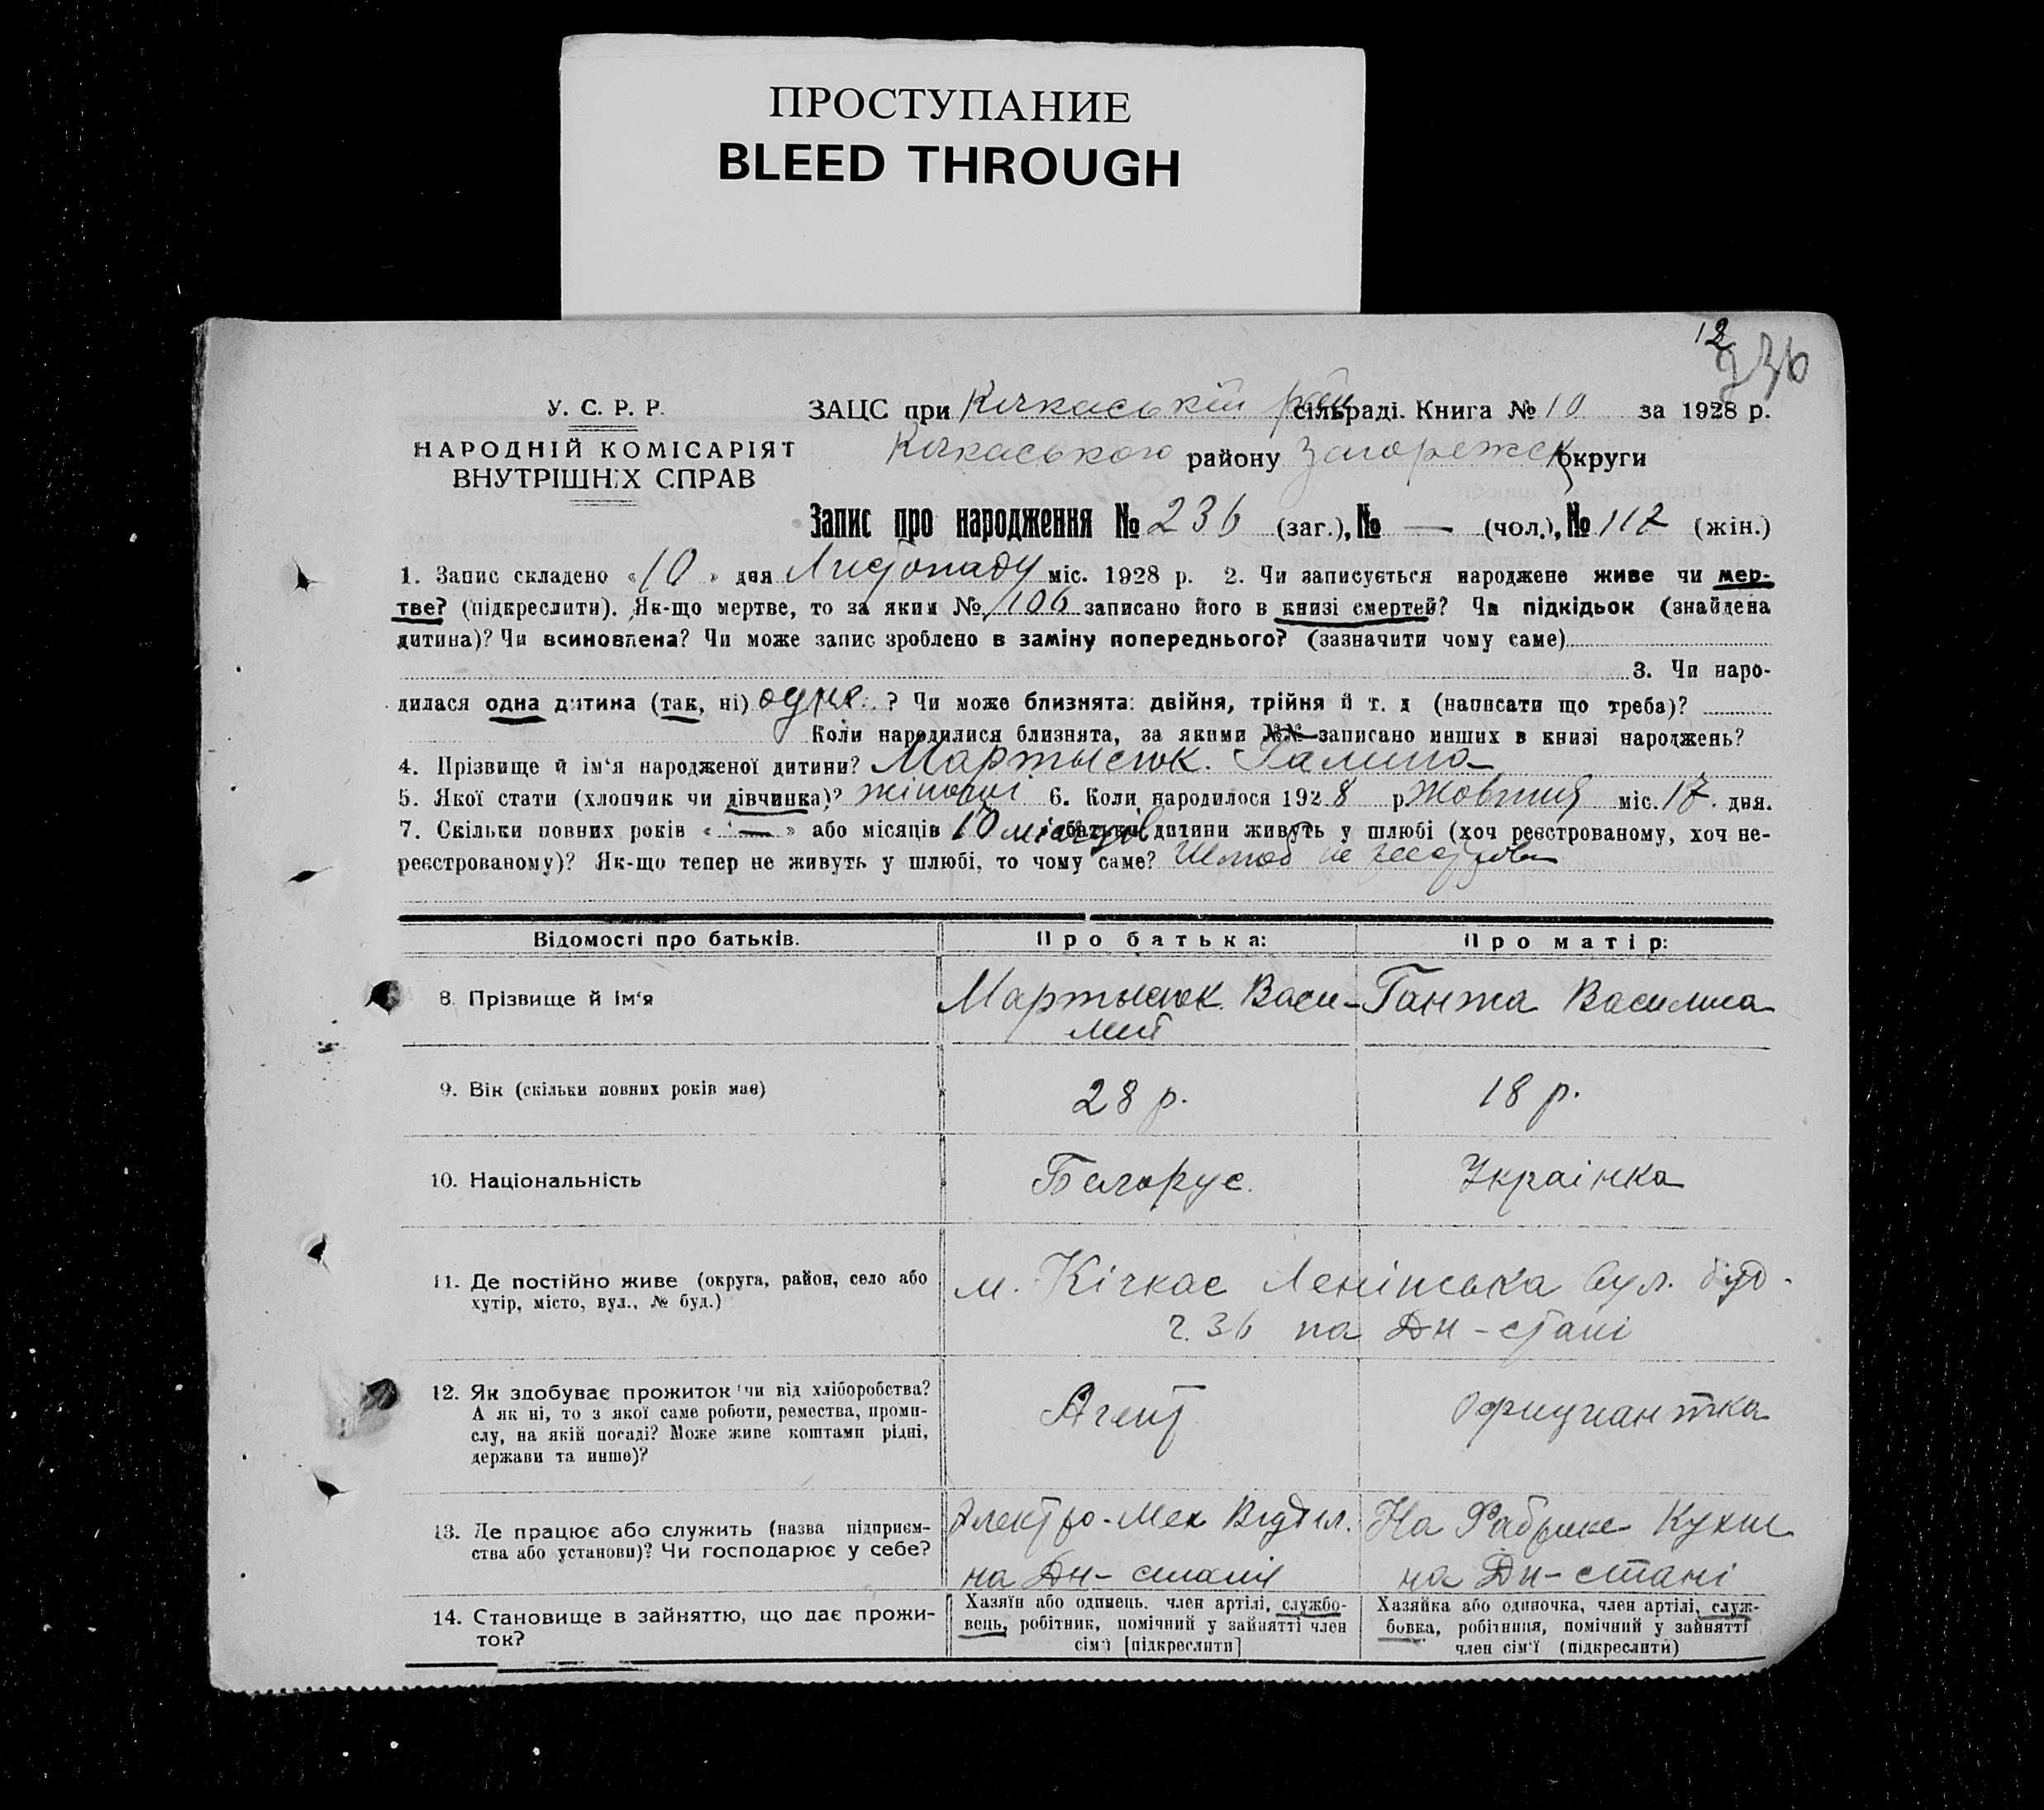 ПРОСТУПАНИЕ
BLEED THROUGH
12
236
У. С. Р. Р.
НАРОДНІЙ КОМІСАРІЯТ
ВНУТРІШНІХ СПРАВ
ЗАЦС при Кічкаській рай сільраді. Книга № 10 за 1928 р.
Кічкаського району Запорожск округи
Запис про народження № 236 (заг.), № — (чол.), № 112 (жін.)
1. Запис складено «10» дня Листопаду міс. 1928 р. 2. Чи записується народжене живе чи мер-
тве? (підкреслити). Як-що мертве, то за яким № 106 записано його в книзі смертей? Чи підкідьок (знайдена
дитина)? Чи всиновлена? Чи може запис зроблено в заміну попереднього? (зазначити чому саме)
3. Чи наро-
дилася одна дитина (так, ні) одне ? Чи може близнята: двійня, трійня й т. д (написати що треба)?
Коли народилися близнята, за якими №№ записано инших в книзі народжень?
4. Прізвище й ім'я народженої дитини? Мартысюк. Галина
5. Якої стати (хлопчик чи дівчинка)? жіночої 6. Коли народилося 1928 р Жовтня міс. 17. дня.
7. Скільки повних років « — » або місяців 10 місяців батьки дитини живуть у шлюбі (хоч реєстрованому, хоч не-
реєстрованому)? Як-що тепер не живуть у шлюбі, то чому саме? Шлюб не
Відомості про батьків.
Про батька:
Про матір:
8. Прізвище й ім'я
Мартысюк Васи-
лий
Ганжа Василиса
9. Вік (скільки повних років має)
28 р.
18 р.
10. Національність
Белорус.
Українка
11. Де постійно живе (округа, район, село або
хутір, місто, вул., № буд.)
м. Кічкас Ленінська вул. буд.
ч. 36 на Дн-стані
12. Як здобуває прожиток чи від хліборобства?
А як ні, то з якої саме роботи, ремества, проми-
слу, на якій посаді? Може живе коштами рідні,
держави та инше)?
Агент
Официантка
13. Де працює або служить (назва підприєм-
ства або установи)? Чи господарює у себе?
Электро-Мех Відділ.
на Дн-стані
На Фабрике Кухни
на Дн-стані
14. Становище в зайняттю, що дає прожи-
ток?
Хазяїн або одинець. член артілі, службо-
вець, робітник, помічний у зайнятті член
сім'ї [підкреслити]
Хазяйка або одиночка, член артілі, служ-
бовка, робітниця, помічний у зайнятті
член сім'ї (підкреслити)